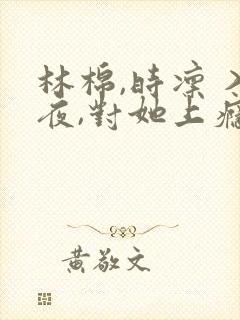 林棉,時凛 入
夜,對她上癮
黃敬文